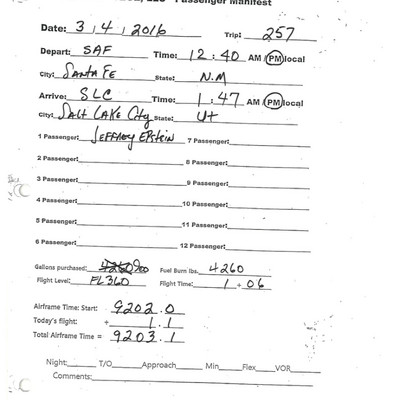 LLC - Passenger Manifest
Date: 3 / 4 / 2016 Trip: 257
Depart: SAF Time: 12 : 40 AM / PM local
City: SANTA FE State: N.M
Arrive: SLC Time: 1 : 47 AM / PM local
City: SALT LAKE City State: UT
1 Passenger: JEFFREY EPSTEIN 7 Passenger:
2 Passenger: 8 Passenger:
3 Passenger: 9 Passenger:
4 Passenger: 10 Passenger:
5 Passenger: 11 Passenger:
6 Passenger: 12 Passenger:
Gallons purchased: Fuel Burn lbs. 4260
Flight Level: FL360 Flight Time: 1 + 06
Airframe Time: Start: 9202.0
Today's flight: + 1.1
Total Airframe Time = 9203.1
Night: T/O Approach Min Flex VOR
Comments: